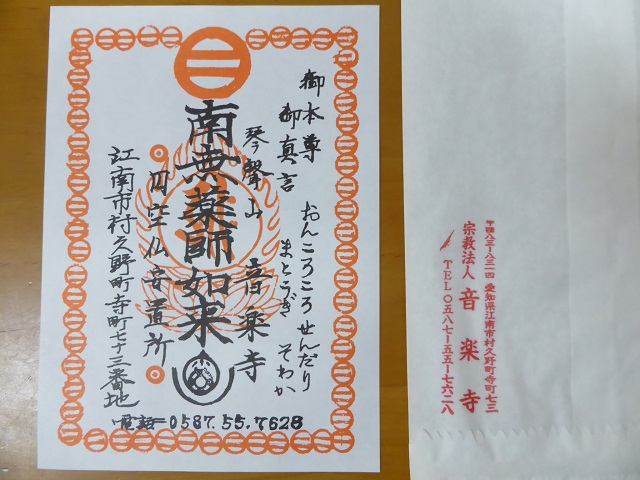 御本尊
御真言
おんころころせんだり
まとうぎ そわか
琴聲山 音楽寺
南無薬師如来
円空仏安置所
江南市村久野町寺町七十三番地
電話 0587.55.7628
〒四八三-八三一四 愛知県江南市村久野町寺町七三
宗教法人 音楽寺
TEL〇五八七-五五-七六二八